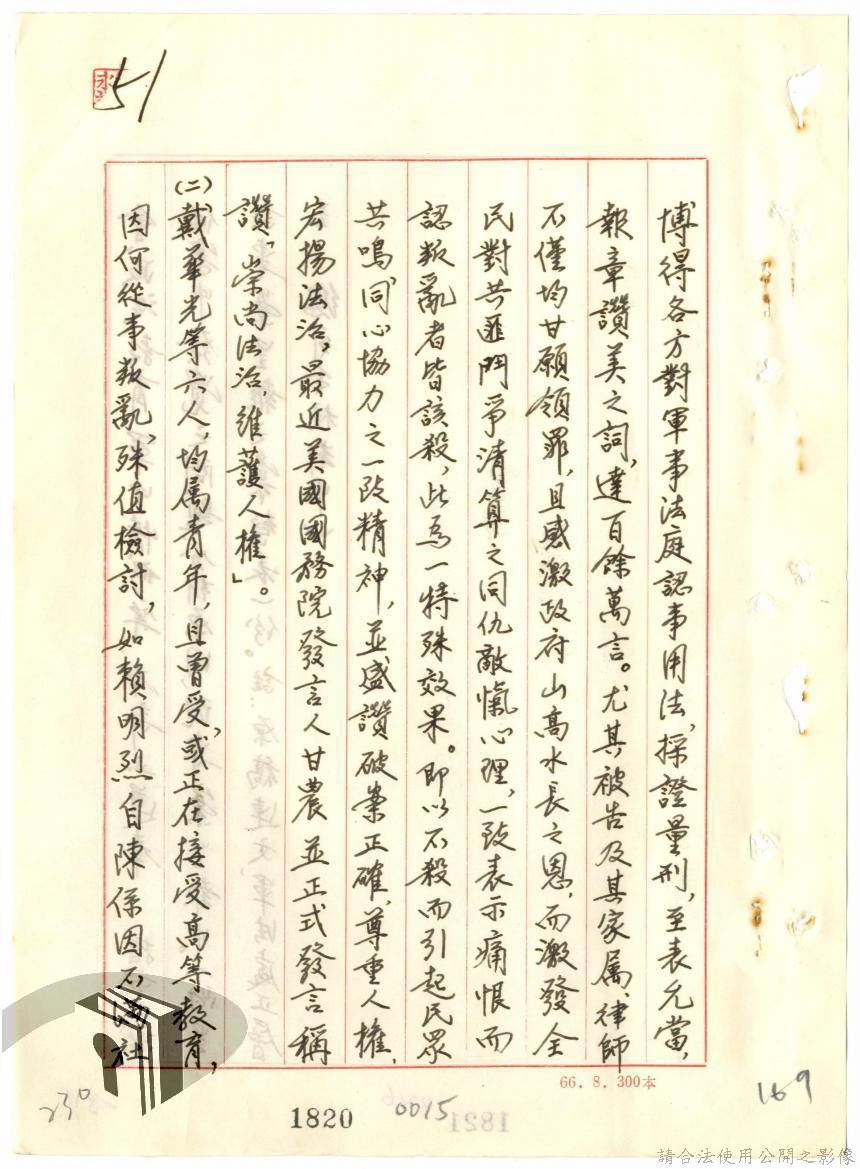 51
博得各方對軍事法庭認事用法,採證量刑,至表允當,
報章讚美之詞,達百餘萬言。尤其被告及其家属、律師
不僅均甘願領罪,且感激政府山高水長之恩,而激發全
民對共匪鬥爭清算之同仇敵愾心理,一致表示痛恨而
認叛亂者皆該殺,此為一特殊效果。即以不殺而引起民眾
共鳴,同心協力之一致精神,並盛讚破案正確,尊重人權,
宏揚法治,最近美國國務院發言人甘農並正式發言稱
讚「崇尚法治,維護人權」。
(二)戴華光等六人,均属青年,且曾受,或正在接受高等教育,
因何從事叛亂,殊值檢討,如賴明烈自陳係因不滿社
66.8.300本
169
230
1820
0015
1821
請合法使用公開之影像